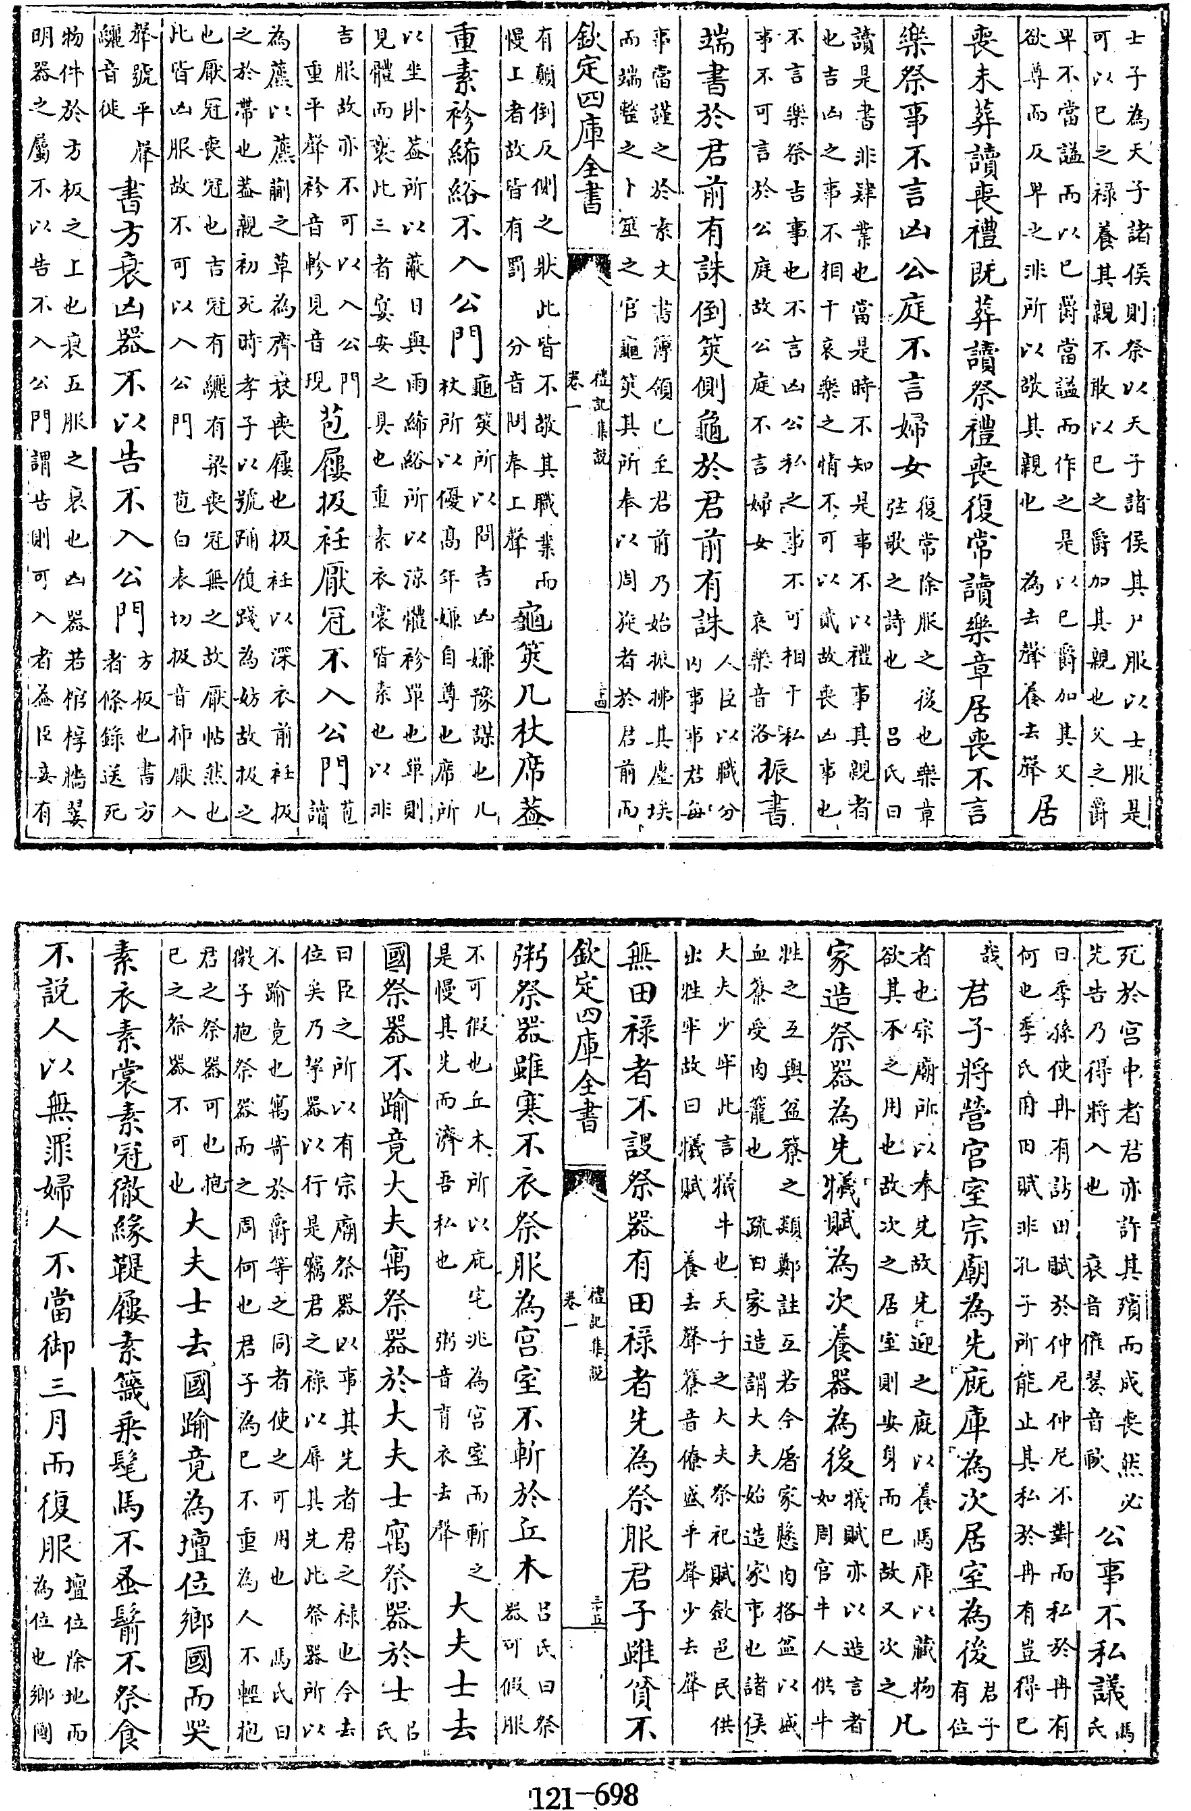 士子為天子諸侯則祭以天子諸侯其尸服以士服是
可以已之禄養其親不敢以已之爵加其親也父之爵
卑不當諡而以已爵當諡而作之是以已爵加其父
欲尊而反卑之非所以敬其親也　為去聲養去聲
居
喪未葬讀喪禮既葬讀祭禮喪復常讀樂章居喪不言
樂祭事不言凶公庭不言婦女
復常除服之後也樂章
弦歌之詩也　吕氏曰
讀是書非肄業也當是時不知是事不以禮事其親者
也吉凶之事不相干哀樂之情不可以貳故喪凶事也
不言樂祭吉事也不言凶公私之事不可相干私
事不可言於公庭故公庭不言婦女　哀樂音洛
振書
端書於君前有誅倒筴側龜於君前有誅
人臣以職分
内事事君每
事當謹之於素文書簿領已至君前乃始振拂其塵埃
而端整之卜筮之官龜筴其所奉以周旋者於君前而
欽定四庫全書
禮記集說
卷一
三十四
有顛倒反側之狀此皆不敬其職業而
慢上者故皆有罰　分音問奉上聲
龜筴几杖席蓋
重素袗絺綌不入公門
龜筴所以問吉凶嫌豫謀也几
杖所以優髙年嫌自尊也席所
以坐卧蓋所以蔽日與雨絺綌所以涼體袗單也單則
見體而褻此三者宴安之具也重素衣裳皆素也以非
吉服故亦不可以入公門
重平聲袗音軫見音現
苞屨扱衽厭冠不入公門
苞
讀
為藨以藨蒯之草為齊衰喪屨也扱衽以深衣前衽扱
之於帶也蓋親初死時孝子以號踊履踐為妨故扱之
也厭冠喪冠也吉冠有纚有梁喪冠無之故厭帖然也
此皆凶服故不可以入公門　苞白表切扱音插厭入
聲號平聲
纚音徙
書方衰凶器不以告不入公門
方板也書方
者條錄送死
物件於方板之上也衰五服之衰也凶器若棺椁牆翣
明器之屬不以告不入公門謂告則可入者蓋臣妾有
死於宫中者君亦許其殯而成喪然必
先告乃得將入也　衰音催翣音歃
公事不私議
馬
氏
曰季孫使冉有訪田賦於仲尼仲尼不對而私於冉有
何也季氏用田賦非孔子所能止其私於冉有豈得已
哉
君子將營宫室宗廟為先廐庫為次居室為後
君子
有位
者也宗廟所以奉先故先迎之廐以養馬庫以藏物
欲其不乏用也故次之居室則安身而已故又次之
凡
家造祭器為先犧賦為次養器為後
犧賦亦以造言者
如周官牛人供牛
牲之互與盆簝之類鄭註互若今屠家懸肉格盆以盛
血簝受肉籠也　疏曰家造謂大夫始造家事也諸侯
大夫少牢此言犧牛也天子之大夫祭祀賦斂邑民供
出牲牢故曰犧賦　養去聲簝音僚盛平聲少去聲
無田禄者不設祭器有田禄者先為祭服君子雖貧不
欽定四庫全書
禮記集說
卷一
三十五
粥祭器雖寒不衣祭服為宫室不斬於丘木
吕氏曰祭
器可假服
不可假也丘木所以庇宅兆為宫室而斬之
是慢其先而濟吾私也　粥音育衣去聲
大夫士去
國祭器不踰竟大夫寓祭器於大夫士寓祭器於士
吕
氏
曰臣之所以有宗廟祭器以事其先者君之禄也今去
位矣乃挈器以行是竊君之禄以辱其先此祭器所以
不踰竟也寓寄於爵等之同者使之可用也　馬氏曰
微子抱祭器而之周何也君子為已不重為人不輕抱
君之祭器可也抱
已之祭器不可也
大夫士去國踰竟為壇位鄉國而哭
素衣素裳素冠徹緣鞮屨素簚乘髦馬不蚤鬋不祭食
不説人以無罪婦人不當御三月而復服
壇位除地而
為位也鄉國
121-698